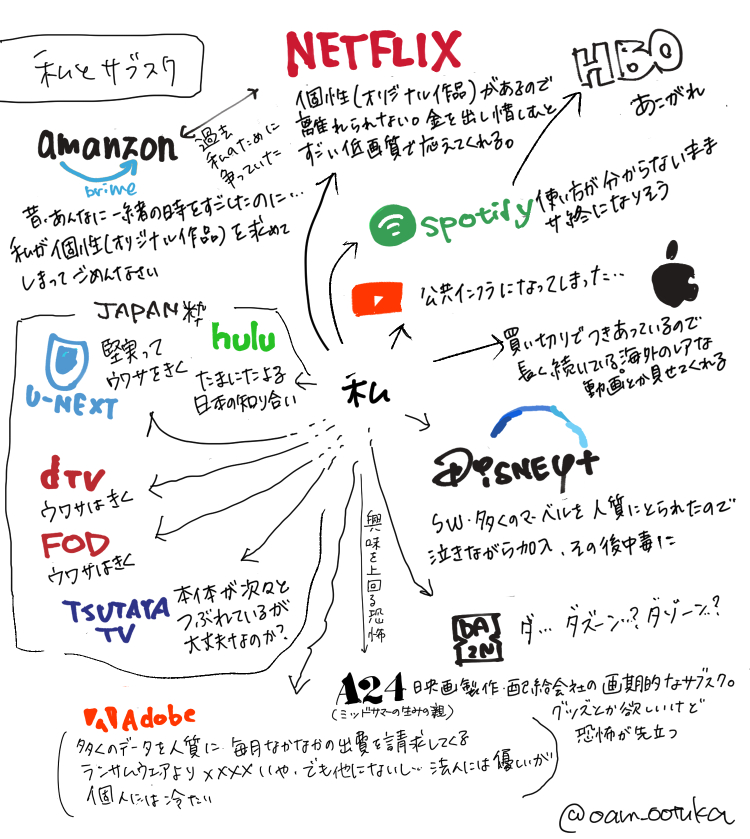 私とサブスク
NETFLIX
個性(オリジナル作品)があるので
離れられない。金を出し惜しむと
すごい低画質で応えてくれる。
HBO
あこがれ
amanzon
prime
過去
私のために
争っていた
昔、あんなに一緒の時をすごしたのに…
私が個性(オリジナル作品)を求めて
しまってごめんなさい
spotify
使い方が分からないまま
サ終になりそう
公共インフラになってしまった…
買い切りでつきあっているので
長く続いている。海外のレアな
動画とか見せてくれる
私
JAPAN粋
U-NEXT
堅実って
ウワサをきく
hulu
たまにたよる
日本の知り合い
dTV
ウワサはきく
FOD
ウワサはきく
TSUTAYA
TV
本体が次々と
つぶれているが
大丈夫なのか?
DisNEY+
SW・多くのマーベルを人質にとられたので
泣きながら加入、その後中毒に
DA
ZN
ダ… ダズーン…? ダゾーン…?
興味を上回る恐怖
A24
(ミッドサマーの生みの親)
映画製作・配給会社の画期的なサブスク。
グッズとか欲しいけど
恐怖が先立つ
Adobe
多くのデータを人質に、毎月なかなかの出費を請求してくる
ランサムウェアより××××いや、でも他にないし… 法人には優しいが
個人には冷たい
@oan_ootuka